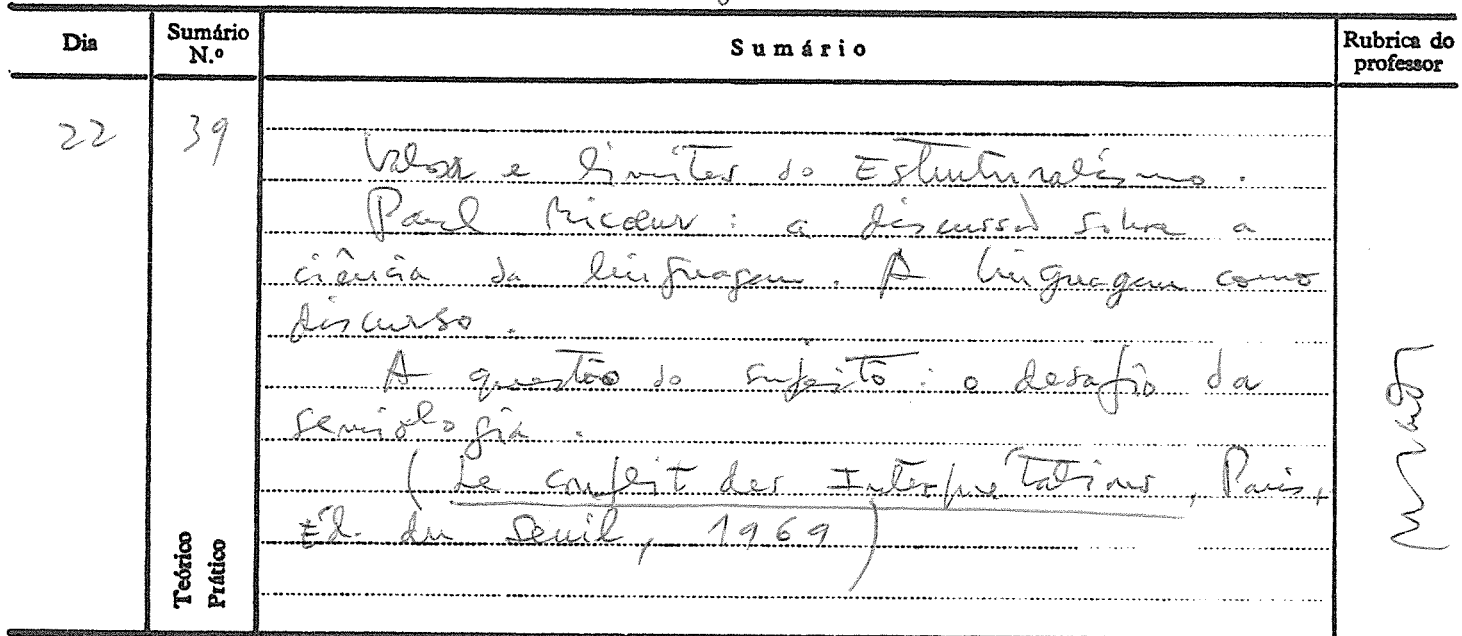 Dia
Sumário N.º
Sumário
Rubrica do professor
22
39
Valor e limites do Estruturalismo.
Paul Ricoeur : a discussão sobre a
ciência da linguagem. A linguagem como
discurso.
A questão do sujeito : o desafio da
semiologia.
(Le conflit des Interprétations, Paris,
Éd. du Seuil, 1969)
Teórico
Prático